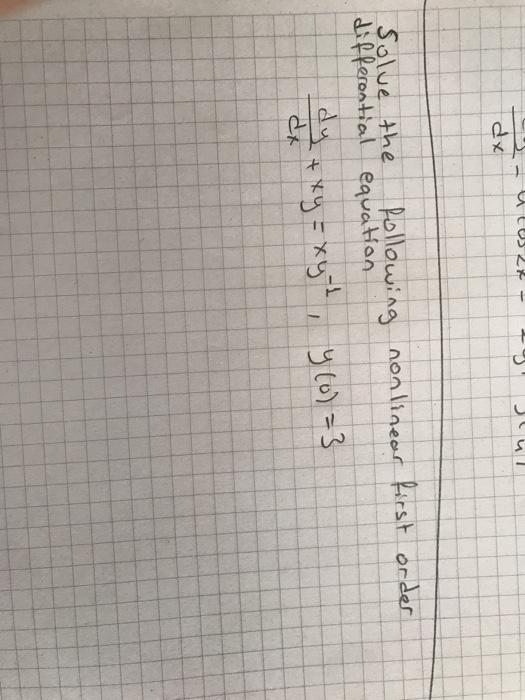 dx
Solve the following nonlinear first order
differential equation
dy/dx + xy = xy⁻¹, y(0) = 3